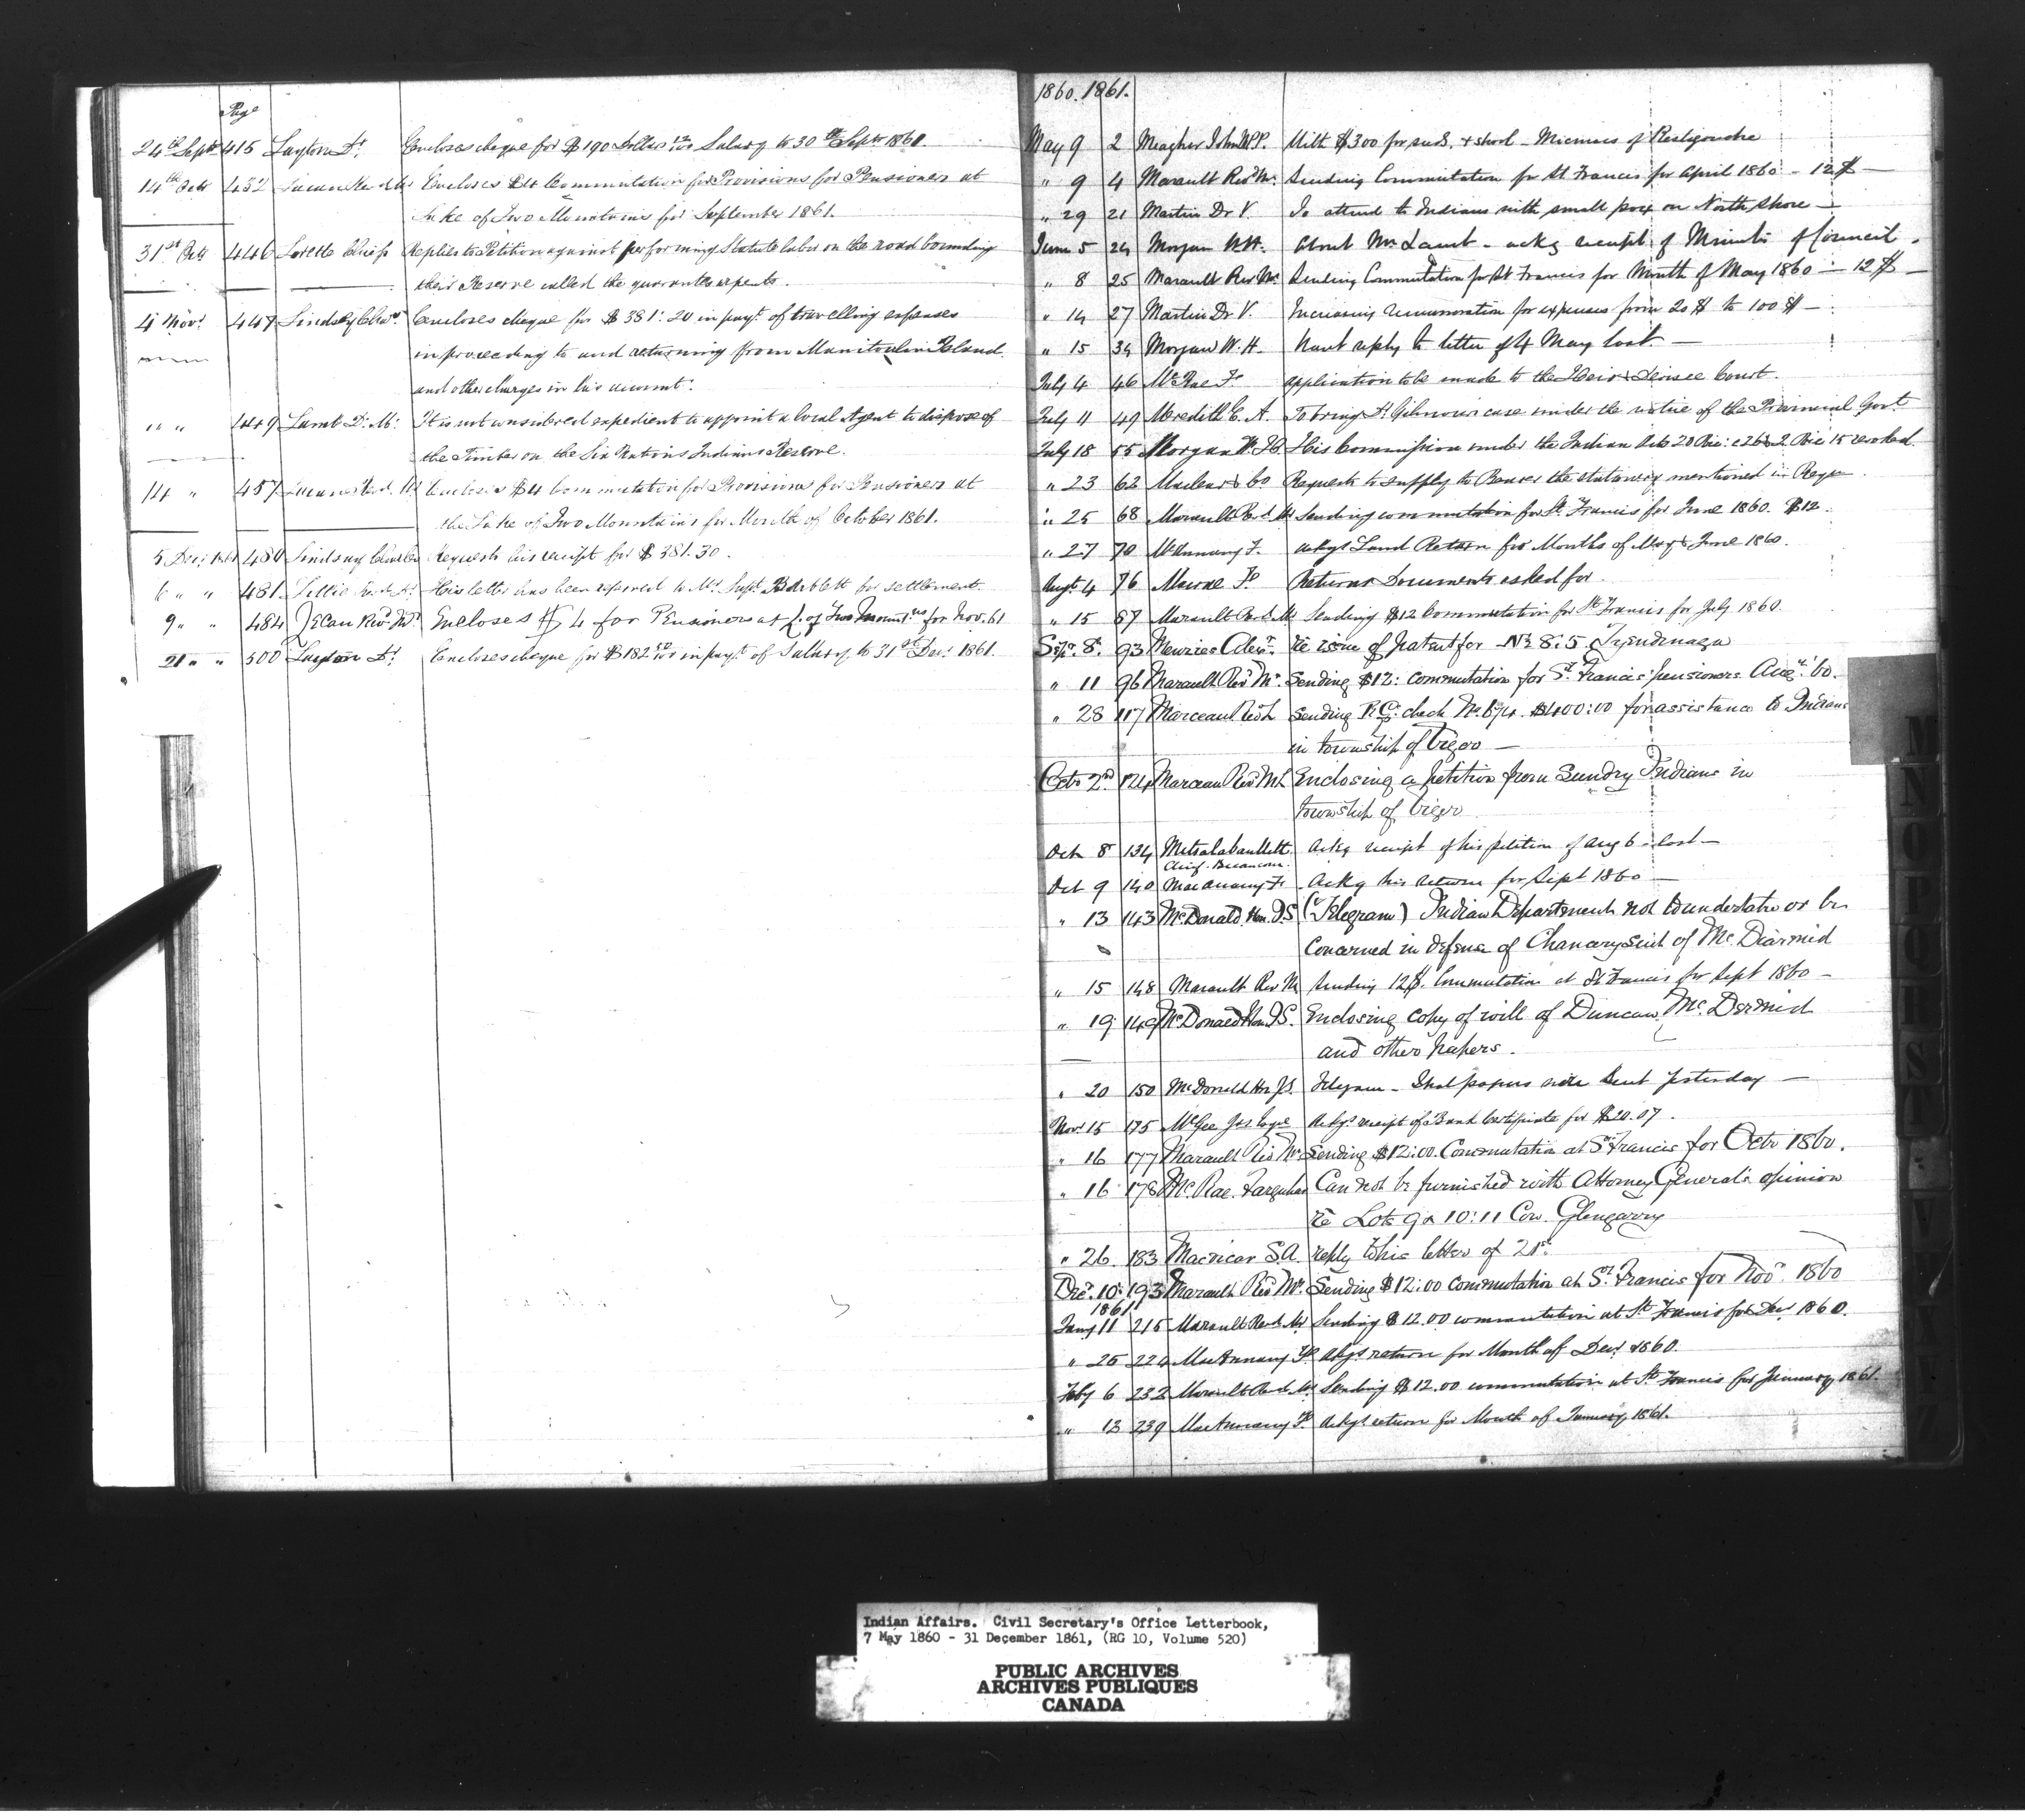 Page
24th Sept 415 Layton Dr. Encloses cheque for $190 Salary to 30th Septr 1861.
14th Octr 432 Encloses $4 Commutation for Provisions for Pensioners at
Lake of Two Mountains for September 1861.
31st Oct 446 Lorette Chiefs Replies to Petition against performing Statute labor on the road bounding
their Reserve called the quarante arpents.
4 Novr 447 Lindsay Chas. Encloses cheque for $381.20 in payt. of travelling expenses
in proceeding to and returning from Manitoulin Island
and other charges in his account.
" " 449 Lamb D. Mc. It is not considered expedient to appoint a local Agent to dispose of
the Timber on the Six Nations Indians Reserve.
14 " 457 Encloses $4 Commutation for Provisions for Pensioners at
the Lake of Two Mountains for Month of October 1861.
5 Decr 1861 480 Lindsay Charles Requests his receipt for $381.30.
6 " " 481 His letter has been referred to Mr. Supt. Bartlett for settlement.
9 " " 484 Encloses $4 for Pensioners at L. of Two Mountns for Nov. 61
21 " " 500 Layton Dr. Encloses cheque for $182 in payt. of Salary to 31st Decr. 1861.
1860. 1861.
May 9 2 Meagher John M.P.P. With $300 for seed + school - Micmacs of Restigouche
" 9 4 Marault Revd Mr. Sending Commutation for St Francis for April 1860 - 12$ -
" 29 21 Martin Dr V. To attend to Indians with small pox on North Shore -
June 5 24 Morgan W.H. About Mr Lamb - ackg receipt of Minute of Council.
" 8 25 Marault Revd Mr. Sending Commutation for St Francis for Month of May 1860 - 12$ -
" 14 27 Martin Dr V. Increasing remuneration for expenses from 20$ to 100$ -
" 15 34 Morgan W.H. Want reply to letter of 4 May last. -
July 4 46 McRae Fr application to be made to the Heir & Devisee Court.
July 11 49 Meredith E. A. To bring Dr Gilmour's case under the notice of the Provincial Govt
July 18 55 Morgan W. H. His Commission under the Indian Acts 20 Vic: c 26 & 2 Vic 15 revoked.
" 23 62 Maclear & Co Requests to supply to Bearer the stationery mentioned in Reqn
" 25 68 Marault Revd Mr Sending commutation for St. Francis for June 1860. $12.
" 27 70 McAnnany F. ackgs Land Return for Months of May & June 1860.
Augt 4 76 Macrae Fr Returns Documents asked for.
" 15 87 Marault Revd Mr Sending $12 Commutation for St Francis for July 1860.
Sepr. 8. 93 Menzies Alexr. re issue of patent for No 8: 5 Tyendinaga
" 11 96 Marault Revd Mr. Sending $12: commutation for St. Francis' pensioners Augt. '60.
" 28 117 Marceau Revd L Sending R.G: check No. 674. $400:00 for assistance to Indians
in township of Viger -
Octr 2nd 124 Marceau Revd Mr L Enclosing a petition from sundry Indians in
township of Viger
Oct 8 134 Metsalabanlett Ackg receipt of his petition of Aug 6 last -
Chief. Becancour.
Oct 9 140 MacAnnany F. Ackg his return for Sept 1860 -
" 13 143 McDonald Hon. J.S. (Telegram) Indian Department not to undertake or be
concerned in defense of Chancery suit of McDiarmid
" 15 148 Marault Rev M Sending 12$. Commutation at St Francis for Sept 1860 -
" 19 149 McDonald Hon J.S. Enclosing copy of will of Duncan McDermid
and other papers.
" 20 150 McDonald Hon J.S. Telegram - that papers were sent yesterday -
Novr 15 175 McGee Jas Esqre Ackgs receipt of Bank Certificate for $20.07.
" 16 177 Marault Revd Mr Sending $12:00. Commutation at St. Francis for Octr 1860.
" 16 178 McRae. Farquhar Can not be furnished with Attorney General's opinion
re Lots 9 & 10: 11 Con. Glengarry
" 26. 183 Macvicar S.A. reply to his letter of 21st.
Decr. 10: 193 Marault Revd Mr. Sending $12:00 commutation at St. Francis for Novr. 1860
1861
Jany 11 215 Marault Revd Mr Sending $12.00 commutation at St Francis for Decr 1860.
" 25 224 MacAnnany Fr Ackgs return for Month of Decr 1860.
Feby 6 232 Marault Revd Mr Sending $12.00 commutation at St Francis for January 1861.
" 13 239 MacAnnany Fr. Ackgs return for Month of January 1861.
M
N
O
P
Q
R
S
T
V
Indian Affairs. Civil Secretary's Office Letterbook,
7 May 1860 - 31 December 1861, (RG 10, Volume 520)
PUBLIC ARCHIVES
ARCHIVES PUBLIQUES
CANADA